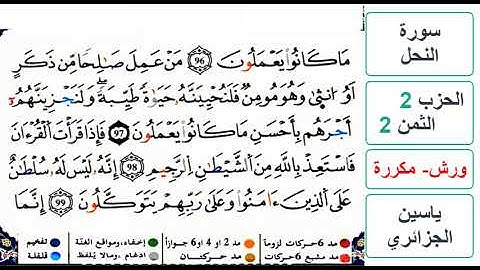 مَا كَانُوا۟ يَعْمَلُونَ 96 مَنْ عَمِلَ صَٰلِحًا مِّن ذَكَرٍ
أَوُ ا۟نث۪يٰ وَهُوَ مُومِنٌ فَلَنُحْيِيَنَّهُۥ حَيَوٰةً طَيِّبَةً وَلَنَجْزِيَنَّهُمُۥٓ
أَجْرَهُم بِأَحْسَنِ مَا كَانُوا۟ يَعْمَلُونَ 97 فَإِذَا قَرَأْتَ اَلْقُرْءَانَ
فَاسْتَعِذْ بِاللَّهِ مِنَ اَلشَّيْطَٰنِ اِلرَّجِيمِ 98 إِنَّهُۥ لَيْسَ لَهُۥ سُلْطَٰنٌ
عَلَى اَلذِينَ ءَامَنُوا۟ وَعَلَىٰ رَبِّهِمْ يَتَوَكَّلُونَ 99 إِنَّمَا
مد 6 حركات لزوماً مد 2 أو 4 أو 6 جوازاً إخفاء، ومواقع الغنّة تفخيم
مد مشبع 6 حركات مد حركتان إدغام، وما لا يُلفظ قلقلة
سورة
النحل
الحزب 2
الثمن 2
ورش- مكررة
ياسين
الجزائري